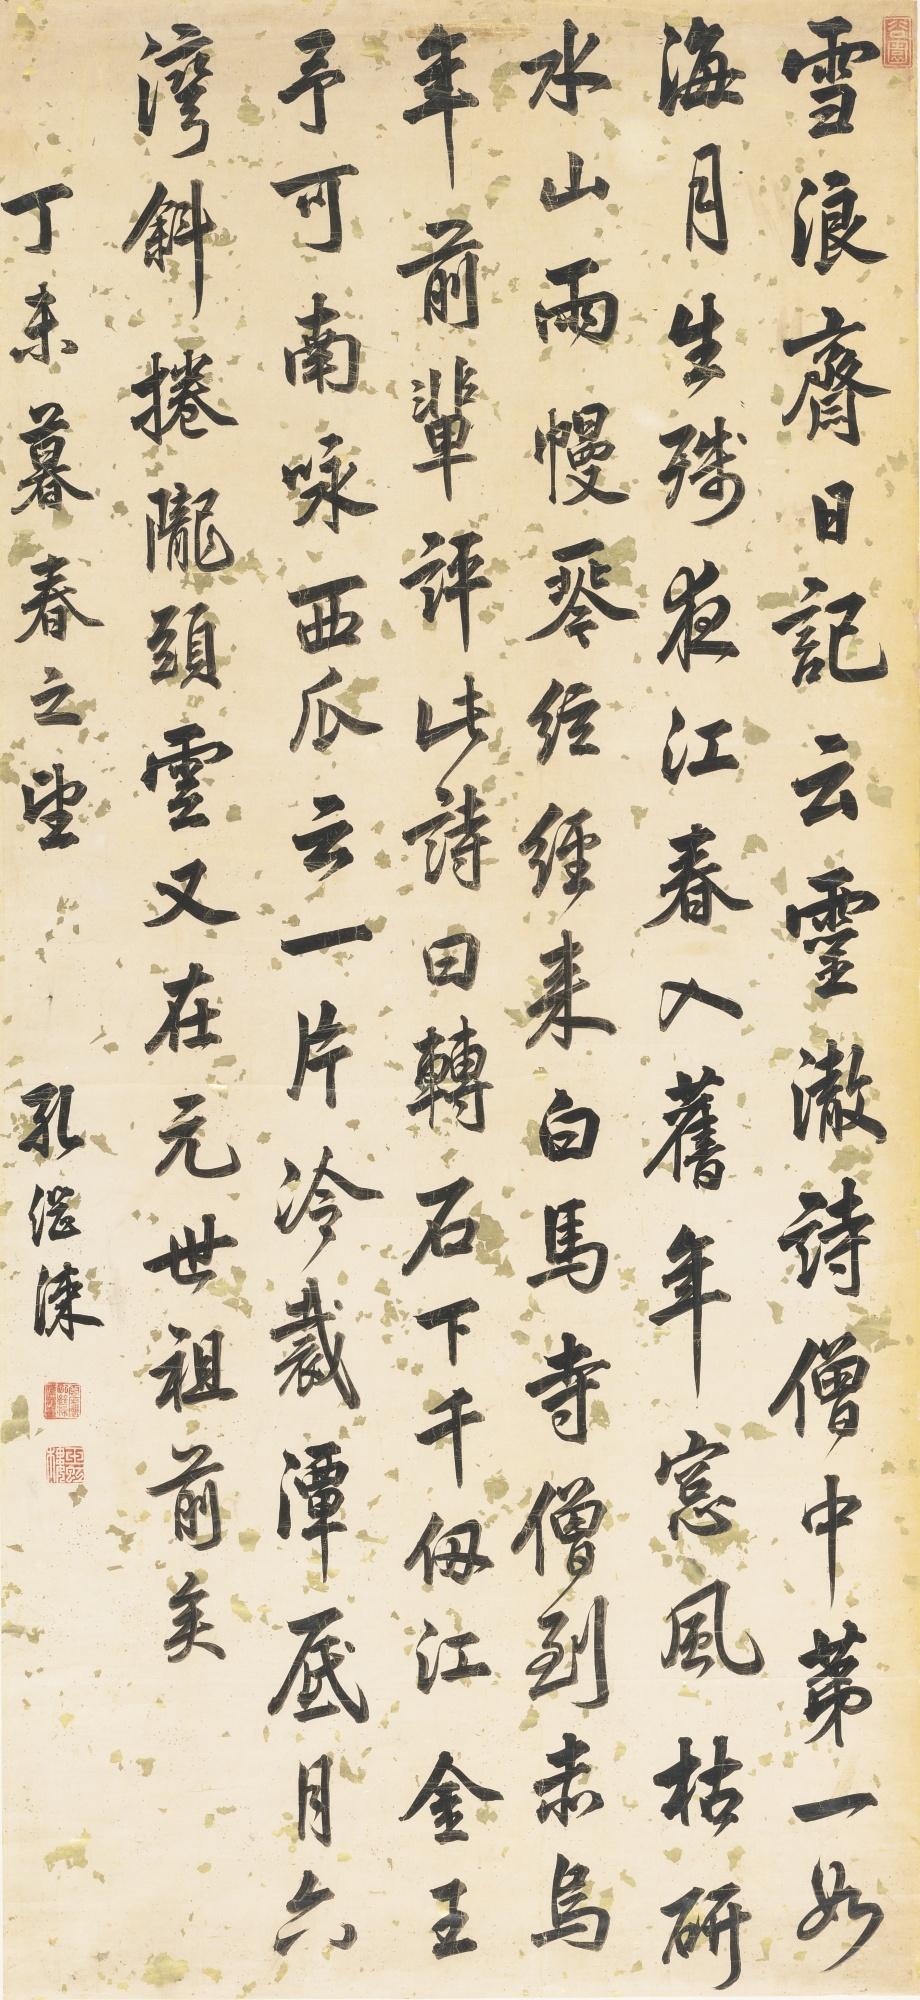 雪浪齋日記云靈澈詩僧中第一如
海月生殘夜江春入舊年窓風枯研
水山雨慢琴絃經來白馬寺僧到赤烏
年前輩評此詩曰轉石下千仞江金王
予可南咏西瓜云一片冷裁潭底月六
灣斜捲隴頭雲又在元世祖前矣
丁未暮春之望
孔继涑